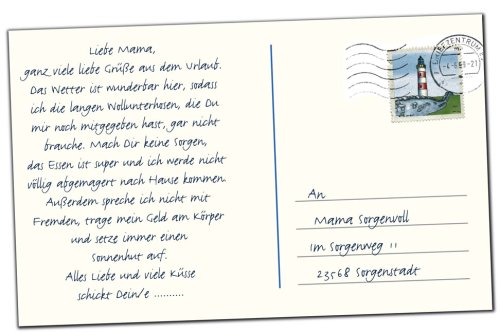 Liebe Mama,
ganz viele liebe Grüße aus dem Urlaub.
Das Wetter ist wunderbar hier, sodass
ich die langen Wollunterhosen, die Du
mir noch mitgegeben hast, gar nicht
brauche. Mach Dir keine Sorgen,
das Essen ist super und ich werde nicht
völlig abgemagert nach Hause kommen.
Außerdem spreche ich nicht mit
Fremden, trage mein Geld am Körper
und setze immer einen
Sonnenhut auf.
Alles Liebe und viele Küsse
schickt Dein/e ..........
An
Mama Sorgenvoll
Im Sorgenweg 11
23568 Sorgenstadt